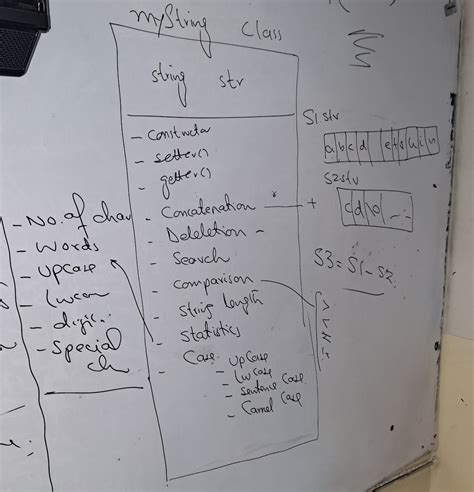 myString Class
string str
- Constructor
- setter()
- getter()
- Concatenation - +
- Deleletion -
- Search
- Comparison
- String length
- Statistics
- Case
- upCase
- lwcase
- Sentence Case
- Camel Case
- No. of char
- Words
- upcase
- lwcase
- digit
- Special ch
S1.str
a b c d
S2.str
c d
S3 = S1 - S2